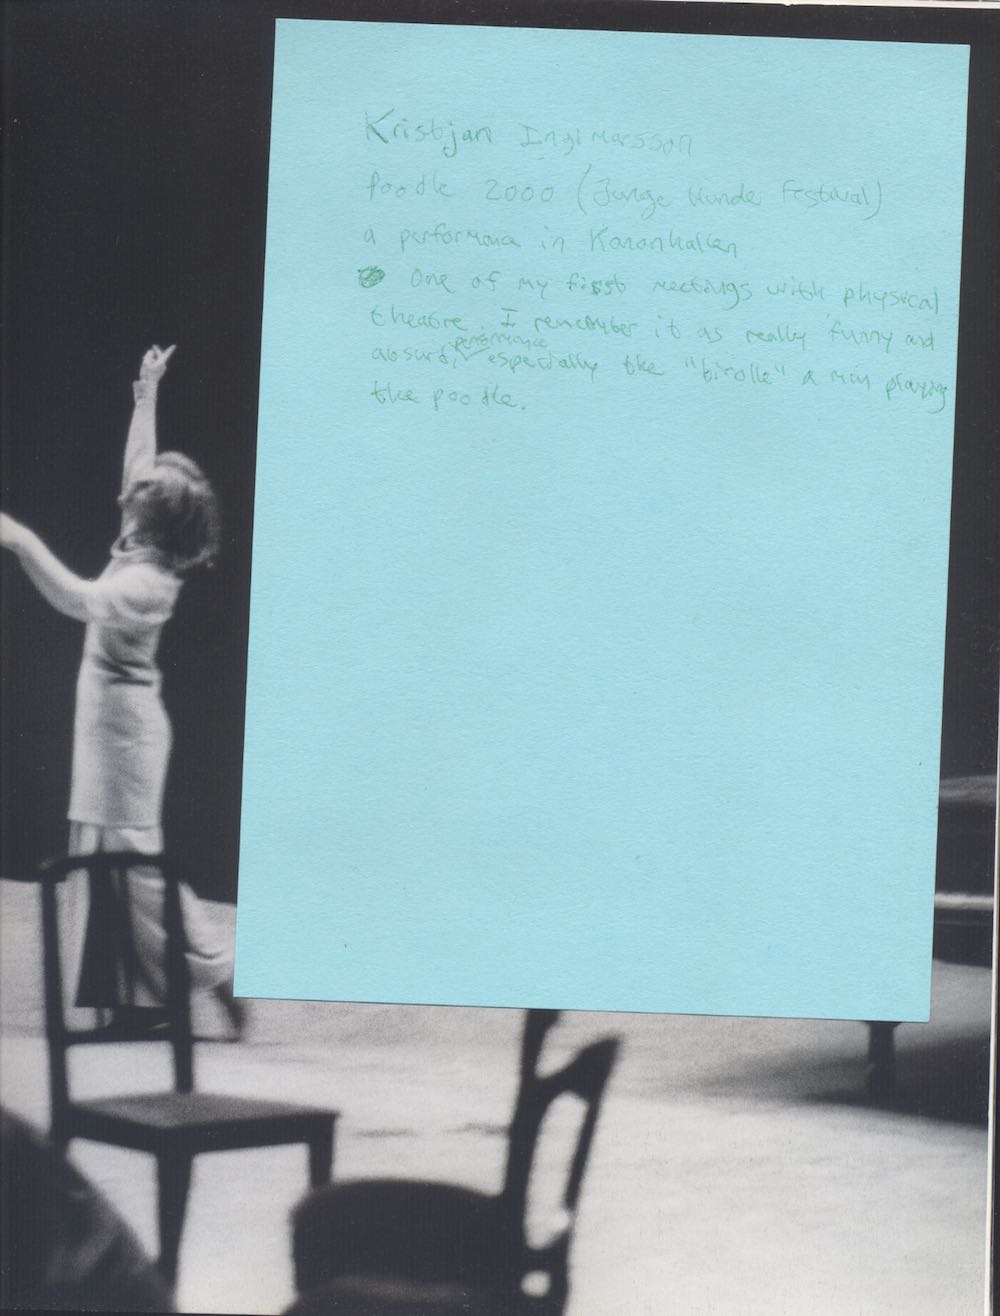 Kristjan Ingimarsson
Poodle 2000 (Junge Hunde Festival)
a performance in Kanonhallen
One of my first meetings with physical
theatre. I remember it as really funny and
absurd, performance especially the "tirolle" a man playing
the poodle.